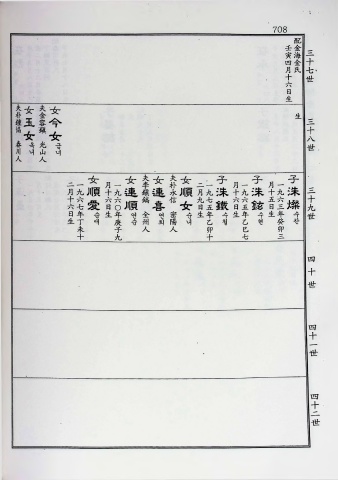 708
三十七世
配金海金氏
壬寅四月十六日生
三十八世
生
女今女금녀
夫金容鎭 光山人
女玉女옥녀
三十九世
子洙燦수찬
一九六三年癸卯三
月十五日生
子洙鉉수현
一九六五年乙巳七
月十六日生
子洙鐵수철
一九七五年乙卯十
二月九日生
女順女순녀
夫朴永信 密陽人
女連喜연희
夫李鎭鎬 全州人
女連順연순
一九六〇年庚子九
月十六日生
女順愛순애
一九六七年丁未十
二月十六日生
四十世
四十一世
四十二世